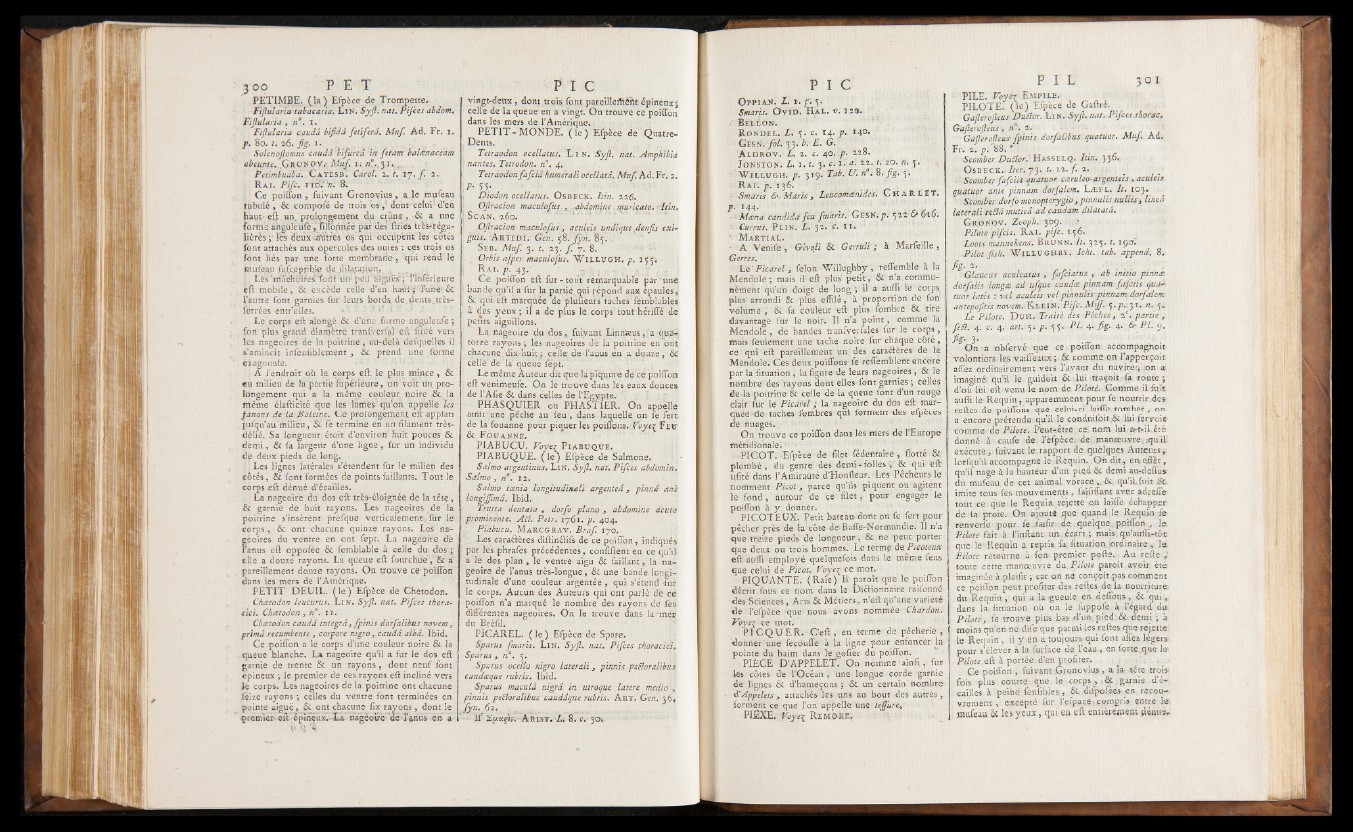 300 PET PIC
PETIMBE. (la) Eſpèce de Trompette.
Fiſtularia tabacaria. LIN. Syſt. nat. Piſces abdom.
Fiſtularia, n°. 1.
Fiſtularia caudâ bifidâ ſetiferâ. Muſ. Ad. Fr. 1.
p. 80. t. 26. fig. 1.
Solenoſtomus caudâ bifurcâ in ſetam balænaceam
abeunte. GRONOV. Muſ. 1. n°. 31.
Petimbuaba. CATESB. Carol. 2. t. 17. f. 2.
RAI. Piſc. 110. n. 8.
Ce poiſſon, ſuivant Gronovius, a le muſeau
tubulé, & compoſé de trois os, dont celui d'en
haut eſt un prolongement du crâne, & a une
forme anguleuſe, ſillonnée par des ſtries très-régu-
lières; les deux autres os qui occupent les côtés
ſont attachés aux opercules des ouies: ces trois os
ſont liés par une forte membrane, qui rend le
muſeau ſuſceptible de dilatation.
Les mâchoires ſont un peu aiguës; l'inférieure
eſt mobile, & excède celle d'en haut; l'une &
l'autre ſont garnies ſur leurs bords de dents très-
ſerrées entr'elles.
Le corps eſt alongé & d'une forme anguleuſe;
ſon plus grand diamètre tranſverſal eſt ſitué vers
les nageoires de la poitrine, au-delà deſquelles il
s'amincit inſenſiblement, & prend une forme
exagonale.
A l'endroit où le corps eſt le plus mince, &
au milieu de la partie ſupérieure, on voit un pro-
longement qui a la même couleur noire & la
même élaſticité que les lames qu'on appelle les
fanons de la Baleine. Ce prolongement eſt applati
juſqu'au milieu, & ſe termine en un filament très-
délié. Sa longueur étoit d'environ huit pouces &
demi, & ſa largeur d'une ligne, ſur un individu
de deux pieds de long.
Les lignes latérales s'étendent ſur le milieu des
côtés, & ſont formées de points ſaillants. Tout le
corps eſt dénué d'écailles.
La nageoire du dos eſt très-éloignée de la tête,
& garnie de huit rayons. Les nageoires de la
poitrine s'insèrent preſque verticalement ſur le
corps, & ont chacune quinze rayons. Les na-
geoires du ventre en ont ſept. La nageoire de
l'anus eſt oppoſée & ſemblable à celle du dos;
elle a douze rayons. La queue eſt fourchue, & a
pareillement douze rayons. On trouve ce poiſſon
dans les mers de l'Amérique.
PETIT DEUIL. (le) Eſpèce de Chetodon.
Chætodon leucurus. LIN. Syſt. nat. Piſces thora-
cici. Chætodon, n°. 11.
Chætodon caudâ integrâ, ſpinis dorſalibus novem,
primâ recumbente, corpore nigro, caudâ albâ. Ibid.
Ce poiſſon a le corps d'une couleur noire & la
queue blanche. La nageoire qu'il a ſur le dos eſt
garnie de trente & un rayons, dont neuf ſont
épineux; le premier de ces rayons eſt incliné vers
le corps. Les nageoires de la poitrine ont chacune
ſeize rayons; celles du ventre ſont terminées en
pointe aiguë, & ont chacune ſix rayons, dont le
premier eſt épineux. La nageoire de l'anus en a
vingt-deux, dont trois ſont pareillement épineux;
celle de la queue en a vingt. On trouve ce poiſſon
dans les mers de l'Amérique.
PETIT-MONDE. (le) Eſpèce de Quatre-
Dents.
Tetraodon ocellatus. LIN. Syſt. nat. Amphibia
nantes. Tetrodon. n°. 4.
Tetraodon faſciâ humerali ocellatâ. Muſ. Ad. Fr. 2.
p. 55.
Diodon ocellatus. OSBECK. Itin. 226.
Oſtracion maculoſus, abdomine muricato. Itin.
SCAN. 260.
Oſtracion maculoſus, aculeis undique denſis exi-
guis. ARTEDI. Gen. 58. ſyn. 85.
SEB. Muſ. 3. t. 23. f. 7. 8.
Orbis aſper maculoſus. WILLUGH. p. 155.
RAI. p. 43.
Ce poiſſon eſt ſur-tout remarquable par une
bande qu'il a ſur la partie qui répond aux épaules,
& qui eſt marquée de pluſieurs taches ſemblables
à des yeux; il a de plus le corps tout hériſſé de
petits aiguillons.
La nageoire du dos, ſuivant Linnæus, a qua-
torze rayons; les nageoires de la poitrine en ont
chacune dix-huit; celle de l'anus en a douze, &
celle de la queue ſept.
Le même Auteur dit que la piquure de ce poiſſon
eſt venimeuſe. On le trouve dans les eaux douces
de l'Aſie & dans celles de l'Egypte.
PHASQUIER ou PHASTIER. On appelle
ainſi une pêche au feu, dans laquelle on ſe ſert
de la fouanne pour piquer les poiſſons. Voyez FEU
& FOUANNE.
PIABUCU. Voyez PIABUQUE.
PIABUQUE. (le) Eſpèce de Salmone.
Salmo argentinus. LIN. Syſt. nat. Piſces abdomin.
Salmo, n°. 12.
Salmo tænia longitudinali argenteâ, pinnâ ani
longiſſimâ. Ibid.
Trutta dentata, dorſo plano, abdomine acuto
prominente. Act. Petr. 1761. p. 404.
Piabucu. MARCGRAV. Braſ. 170.
Les caractères diſtinctifs de ce poiſſon, indiqués
par les phraſes précédentes, conſiſtent en ce qu'il
a le dos plan, le ventre aigu & ſaillant, la na-
geoire de l'anus très-longue, & une bande longi-
tudinale d'une couleur argentée, qui s'étend ſur
le corps. Aucun des Auteurs qui ont parlé de ce
poiſſon n'a marqué le nombre des rayons de ſes
différentes nageoires. On le trouve dans la mer
du Bréſil.
PICAREL. (le) Eſpèce de Spare.
Sparus ſmaris. LIN. Syſt. nat. Piſces thoracici.
Sparus, n°. 5.
Sparus ocello nigro laterali, pinnis pectoralibus
caudæque rubris. Ibid.
Sparus maculâ nigrâ in utroque latere medio,
pinnis pectoralibus caudâque rubris. ART. Gen. 36.
ſyn. 62.
Η Σμαρὶς. ARIST. L. 8. c. 30.
PIC PIL 301
OPPIAN. L. 1. p. 5.
Smaris. OVID. HAL. v. 120.
BELLON.
RONDEL. L. 5. c. 14. p. 140.
GESN. fol. 33. b. E. G.
ALDROV. L. 2. c. 40. p. 228.
JONSTON. L. 1. t. 3. c. 1. a. 22. t. 20. n. 5.
WILLUGH. p. 319. Tab. U. n°. 8. fig. 5.
RAI. p. 136.
Smaris & Maris, Leucomænides. CHARLET.
p. 144.
Mæna candida ſeu ſmaris. GESN. p. 522 & 616.
Cuerus. PLIN. L. 32. c. 11.
MARTIAL.
A Veniſe, Giroli & Gerruli; à Marſeille,
Gerres.
Le Picarel, ſelon Willughby, reſſemble à la
Mendole; mais il eſt plus petit, & n'a commu-
nément qu'un doigt de long; il a auſſi le corps
plus arrondi & plus effilé, à proportion de ſon
volume, & ſa couleur eſt plus ſombre & tire
davantage ſur le noir. Il n'a point, comme la
Mendole, de bandes tranſverſales ſur le corps,
mais ſeulement une tache noire ſur chaque côté,
ce qui eſt pareillement un des caractères de la
Mendole. Ces deux poiſſons ſe reſſemblent encore
par la ſituation, la figure de leurs nageoires, & le
nombre des rayons dont elles ſont garnies; celles
de la poitrine & celle de la queue ſont d'un rouge
clair ſur le Picarel; la nageoire du dos eſt mar-
quée de taches ſombres qui forment des eſpèces
de nuages.
On trouve ce poiſſon dans les mers de l'Europe
méridionale.
PICOT. Eſpèce de filet ſédentaire, flotté &
plombé, du genre des demi-folles, & qui eſt
uſité dans l'Amirauté d'Honfleur. Les Pêcheurs le
nomment Picot, parce qu'ils piquent ou agitent
le fond, autour de ce filet, pour engager le
poiſſon à y donner.
PICOTEUX. Petit bateau dont on ſe ſert pour
pêcher près de la côte de Baſſe-Normandie. Il n'a
que treize pieds de longueur, & ne peut porter
que deux ou trois hommes. Le terme de Picoteux
eſt auſſi employé quelquefois dans le même ſens
que celui de Picot. Voyez ce mot.
PIQUANTE. (Raie) Il paroît que le poiſſon
décrit ſous ce nom dans le Dictionnaire raiſonné
des Sciences, Arts & Métiers, n'eſt qu'une variété
de l'eſpèce que nous avons nommée Chardon.
Voyez ce mot.
PICQUER. C'eſt, en terme de pêcherie,
donner une ſecouſſe à la ligne pour enfoncer la
pointe du haim dans le goſier du poiſſon.
PIÈCE D'APPELET. On nomme ainſi, ſur
les côtes de l'Océan, une longue corde garnie
de lignes & d'hameçons; & un certain nombre
d'Appelets, attachés les uns au bout des autres,
forment ce que l'on appelle une teſſure.
PIEXE. Voyez REMORE.
PILE. Voyez EMPILE.
PILOTE. (le) Eſpèce de Gaſtré.
Gaſteroſteus Ductor. LIN. Syſt. nat. Piſces thorac.
Gaſteroſteus, n°. 2.
Gaſteroſteus ſpinis dorſalibus quatuor. Muſ. Ad.
Fr. 2. p. 88.
Scomber Ductor. HASSELQ. Itin. 336.
OSBECK. Iter. 73. t. 12. f. 2.
Scomber faſciis quatuor cæruleo-argenteis, aculeis
quatuor ante pinnam dorſalem. LŒFL. It. 103.
Scomber dorſo monopterygio, pinnulis nullis, lineâ
laterali rectâ muticâ ad caudam dilatatâ.
GRONOV. Zooph. 309.
Pilote piſcis. RAI. piſc. 156.
Loots mannekens. BRUNN. It. 325. t. 190.
Pilot-fish. WILLUGHBY. Icht. tab. append. 8.
fig. 2.
Glaucus aculeatus, faſciatus, ab initio pinnæ
dorſalis longæ ad uſque caudæ pinnam faſciis qua-
tuor latis: vel aculeis vel pinnulis pinnam dorſalem
antepoſitis novem. KLEIN. Piſc. Miſſ. 5. p. 31. n. 5.
Le Pilote. DUH. Traité des Pêches, 2e. partie,
ſect. 4. c. 4. art. 5. p. 55. Pl. 4. fig. 4. & Pl. 9.
fig. 3.
On a obſervé que ce poiſſon accompagnoit
volontiers les vaiſſeaux; & comme on l'apperçoit
aſſez ordinairement vers l'avant du navire, on a
imaginé qu'il le guidoit & lui traçoit ſa route;
d'où lui eſt venu le nom de Pilote. Comme il ſuit
auſſi le Requin, apparemment pour ſe nourrir des
reſtes de poiſſons que celui-ci laiſſe tomber, on
a encore prétendu qu'il le conduiſoit & lui ſervoit
comme de Pilote. Peut-être ce nom lui a-t-il été
donné à cauſe de l'eſpèce de manœuvre qu'il
exécute, ſuivant le rapport de quelques Auteurs,
lorſqu'il accompagne le Requin. On dit, en effet,
qu'il nage à la hauteur d'un pied & demi au-deſſus
du muſeau de cet animal vorace, & qu'il ſuit &
imite tous ſes mouvements, ſaiſiſſant avec adreſſe
tout ce que le Requin rejette ou laiſſe échapper
de ſa proie. On ajoute que quand le Requin ſe
renverſe pour ſe ſaiſir de quelque poiſſon, le
Pilote fait à l'inſtant un écart; mais qu'auſſi-tôt
que le Requin a repris ſa ſituation ordinaire, le
Pilote retourne à ſon premier poſte. Au reſte,
toute cette manœuvre du Pilote paroît avoir été
imaginée à plaiſir; car on ne conçoit pas comment
ce poiſſon peut profiter des reſtes de la nourriture
du Requin, qui a la gueule en deſſous, & qui,
dans la ſituation où on le ſuppoſe à l'égard du
Pilote, ſe trouve plus bas d'un pied & demi; à
moins qu'on ne diſe que parmi les reſtes que rejette
le Requin, il y en a toujours qui ſont aſſez légers
pour s'élever à la ſurface de l'eau, en ſorte que le
Pilote eſt à portée d'en profiter.
Ce poiſſon, ſuivant Gronovius, a la tête trois
fois plus courte que le corps, & garnie d'é-
cailles à peine ſenſibles, & diſpoſées en recou-
vrement, excepté ſur l'eſpace compris entre le
muſeau & les yeux, qui en eſt entièrement dénué.